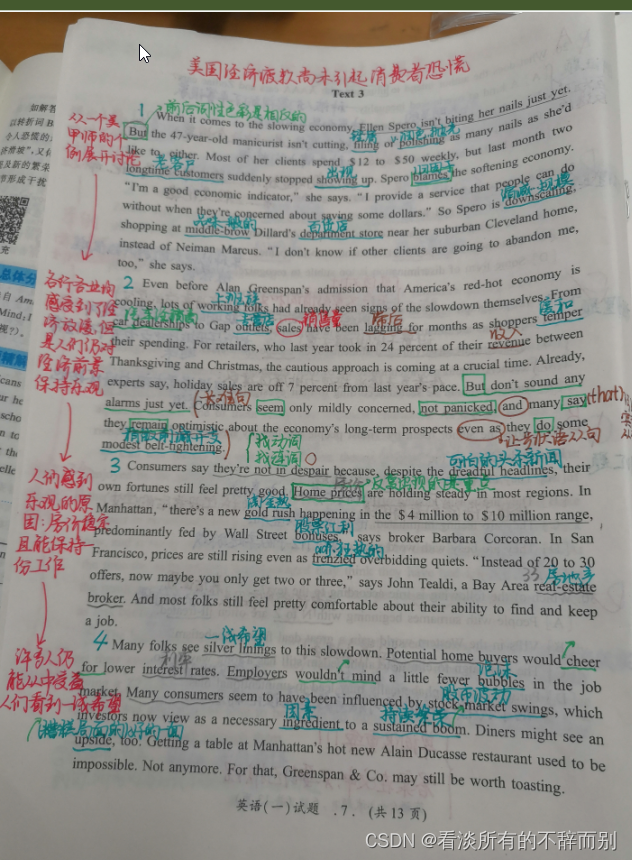 美国经济疲软尚未引起消费者恐慌
Text 3
1 前后词性色彩是相反的
When it comes to the slowing economy, Ellen Spero isn't biting her nails just yet.
But the 47-year-old manicurist isn't cutting, filing or polishing as many nails as she'd
like to, either. Most of her clients spend $12 to $50 weekly, but last month two
老客户 出现
longtime customers suddenly stopped showing up. Spero blames the softening economy.
"I'm a good economic indicator," she says. "I provide a service that people can do
without when they're concerned about saving some dollars." So Spero is downscaling,
百货店
shopping at middle-brow Dillard's department store near her suburban Cleveland home,
instead of Neiman Marcus. "I don't know if other clients are going to abandon me,
too," she says.
2 Even before Alan Greenspan's admission that America's red-hot economy is
上班族
cooling, lots of working folks had already seen signs of the slowdown themselves. From
car dealerships to Gap outlets, sales have been lagging for months as shoppers temper
收入
their spending. For retailers, who last year took in 24 percent of their revenue between
Thanksgiving and Christmas, the cautious approach is coming at a crucial time. Already,
experts say, holiday sales are off 7 percent from last year's pace. But don't sound any
alarms just yet. Consumers seem only mildly concerned, not panicked, and many say (that)
they remain optimistic about the economy's long-term prospects even as they do some
modest belt-tightening.
找动词
找连词
3 Consumers say they're not in despair because, despite the dreadful headlines, their
own fortunes still feel pretty good. Home prices are holding steady in most regions. In
淘金热
Manhattan, "there's a new gold rush happening in the $4 million to $10 million range,
股票红利
predominantly fed by Wall Street bonuses," says broker Barbara Corcoran. In San
疯狂的
Francisco, prices are still rising even as frenzied overbidding quiets. "Instead of 20 to 30
offers, now maybe you only get two or three," says John Tealdi, a Bay Area real-estate
broker. And most folks still feel pretty comfortable about their ability to find and keep
a job.
一线希望
4 Many folks see silver linings to this slowdown. Potential home buyers would cheer
利率
for lower interest rates. Employers wouldn't mind a little fewer bubbles in the job
股市波动
market. Many consumers seem to have been influenced by stock-market swings, which
因素 持续繁荣
investors now view as a necessary ingredient to a sustained boom. Diners might see an
upside, too. Getting a table at Manhattan's hot new Alain Ducasse restaurant used to be
impossible. Not anymore. For that, Greenspan & Co. may still be worth toasting.
从一个美
甲师的个
例展开讨论
各行各业均
感受到了经
济放缓,但
是人们仍对
经济前景
保持乐观
人们感到
乐观的原
因:房价稳定
且能保持
一份工作
许多人仍
能从中受益
人们看到一线希望
糟糕局面的好的一面
英语(一)试题 .7. (共13页)
CSDN @看淡所有的不辞而别